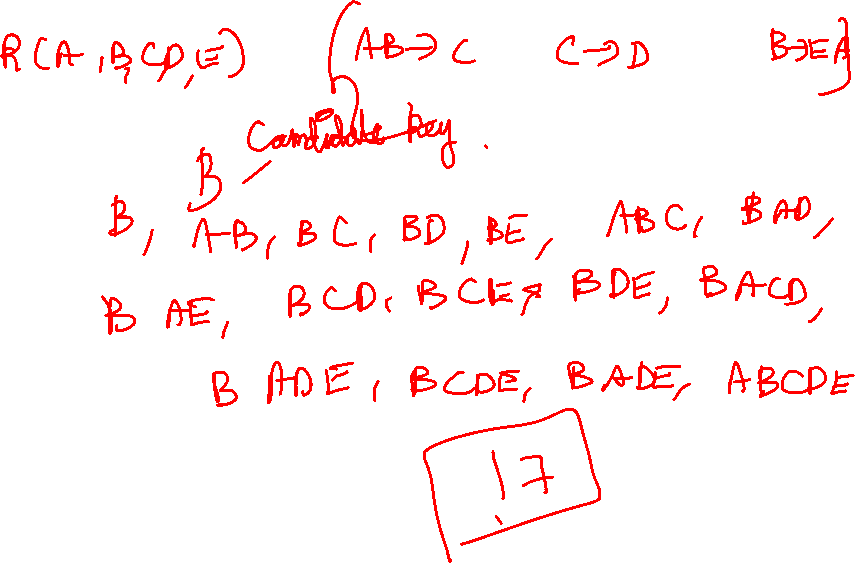 R(A,B,CD,E) {AB→C C→D B→EA}
Candidate key.
B
B, AB, BC, BD, BE, ABC, BAD,
B AE, BCD, BCE, BDE, BACD,
B ADE, BCDE, BADE, ABCDE
17